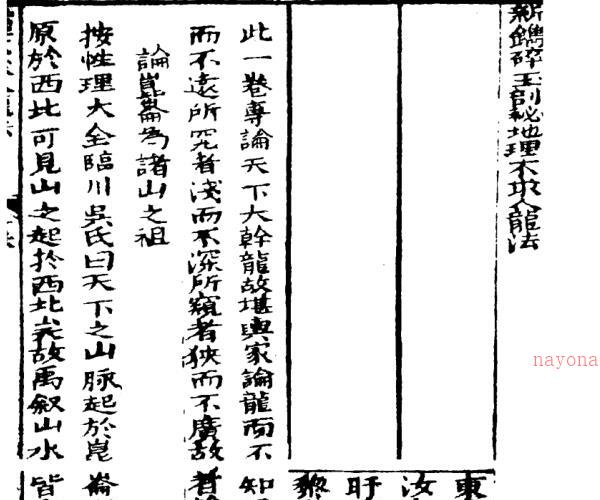 新鐫碎玉剖秘地理不求人龍法
東
汝
盱
黎
此一卷專論天下大幹龍故堪輿家論龍而不知
而不遠所究者淺而不深所窺者狹而不廣故者
論崑崙為諸山之祖
按性理大全臨川吳氏曰天下之山脉起於崑崙
原於西北可見山之起於西北矣故禹叙山水皆
nayona